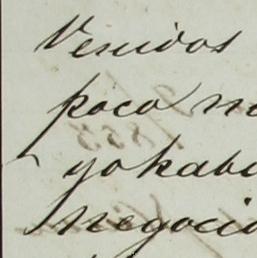 Venidos
poco no
yo habe
negocio